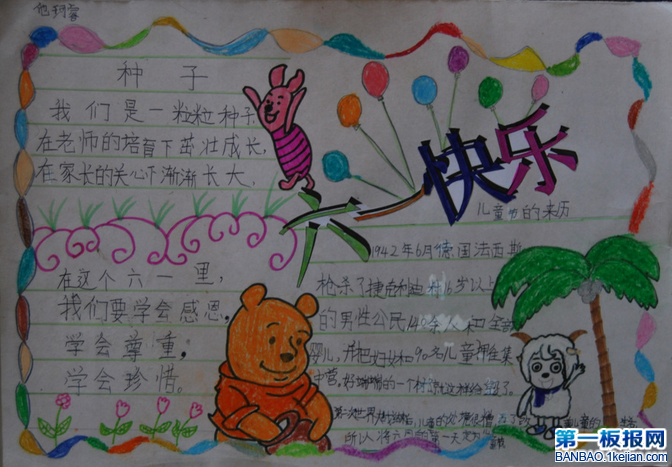 种子
我们是一粒粒种子
在老师的培育下茁壮成长,
在家长的关心下渐渐长大。
在这个六一里,
我们要学会感恩,
学会尊重,
学会珍惜。
六一快乐
儿童节的来历
1942年6月德国法西斯
枪杀了捷克利迪 村16岁以上
的男性公民140余人和全部
婴儿,并把妇女和90名儿童押往集
中营,好端端的一个村
第二次世界大战 儿童的处境
所以 将六月的第一天
第一板报网
BANBAO.1kejian.com